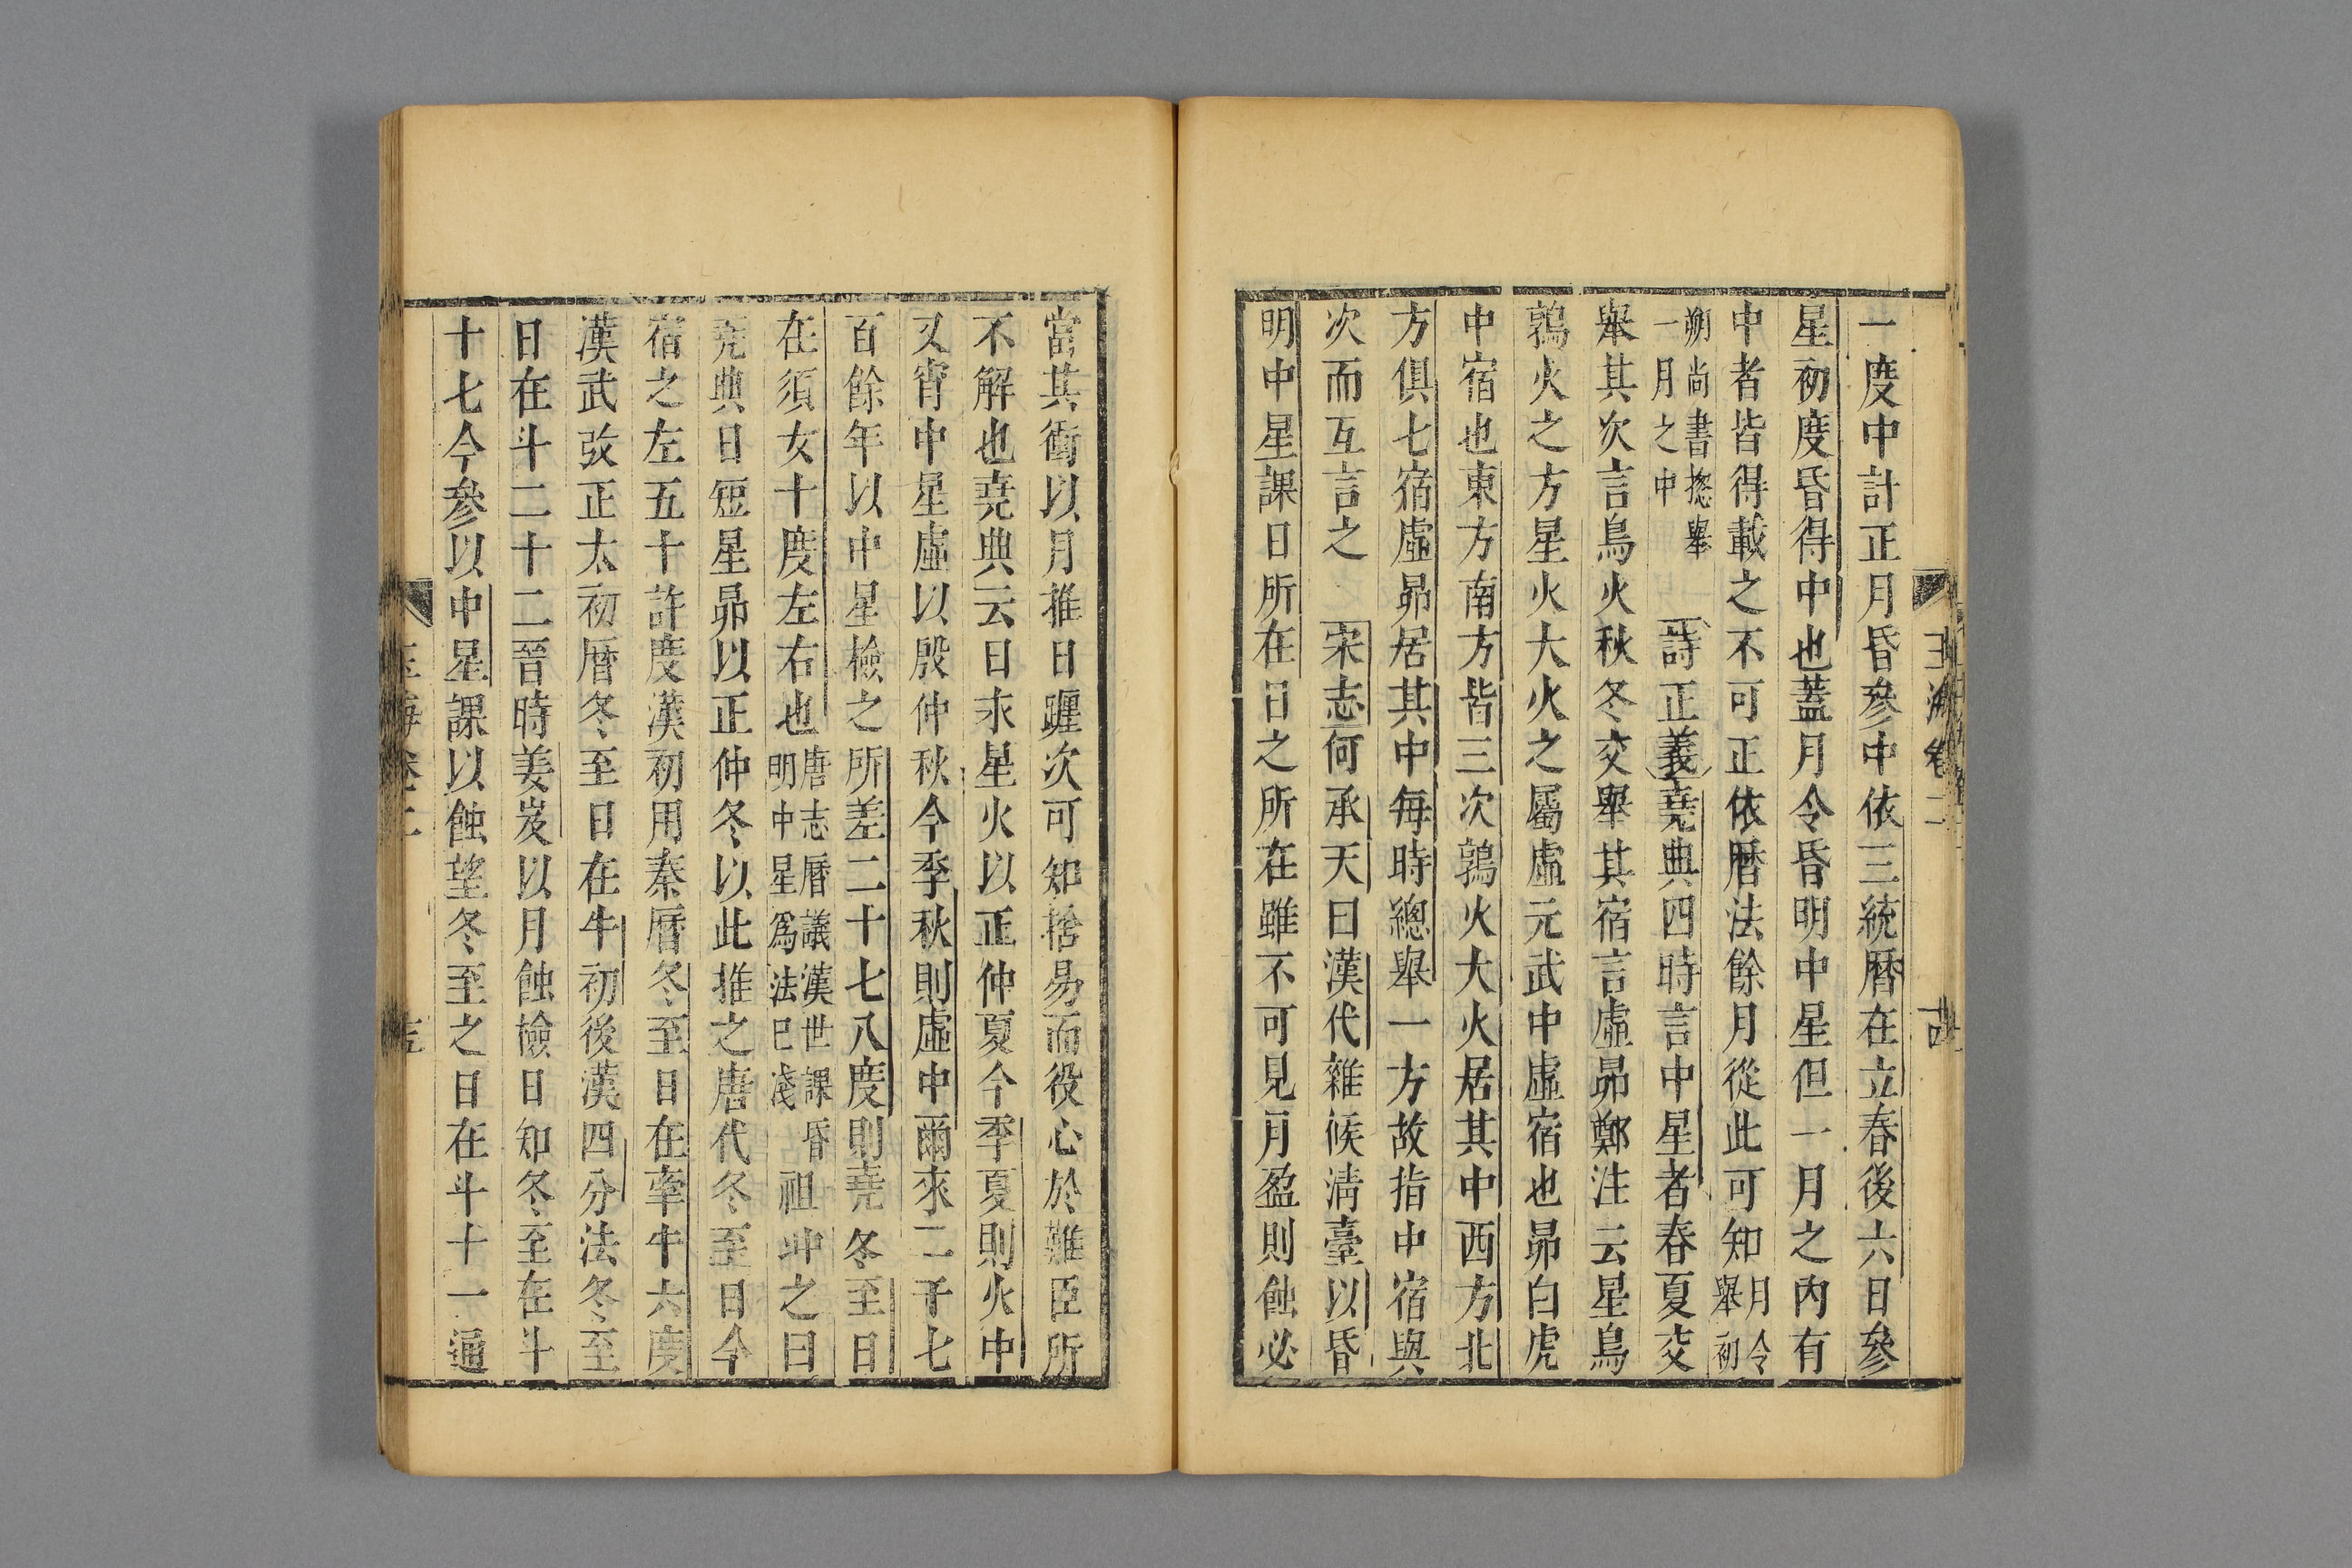 玉海卷二
一度中計正月昏參中依三統曆在立春後六日參
星初度昏得中也蓋月令昏明中星但一月之內有
中者皆得載之不可正依曆法餘月從此可知月令舉初
朔尚書摠舉一月之中　詩正義堯典四時言中星者春夏交
舉其次言鳥火秋冬交舉其宿言虛昴鄭注云星鳥
鶉火之方星火大火之屬虛元武中虛宿也昴白虎
中宿也東方南方皆三次鶉火大火居其中西方北
方俱七宿虛昴居其中每時總舉一方故指中宿與
次而互言之　宋志何承天曰漢代雜候淸臺以昏
明中星課日所在日之所在雖不可見月盈則蝕必
當其衝以月推日躔次可知捨易而役心於難臣所
不解也堯典云日永星火以正仲夏今季夏則火中
又宵中星虛以殷仲秋今季秋則虛中爾來二千七
百餘年以中星檢之所差二十七八度則堯冬至日
在須女十度左右也唐志曆議漢世課昏明中星爲法已淺　祖沖之曰
堯典日短星昴以正仲冬以此推之唐代冬至日今
宿之左五十許度漢初用秦曆冬至日在牽牛六度
漢武改正太初曆冬至日在牛初後漢四分法冬至
日在斗二十二晉時姜岌以月蝕檢日知冬至在斗
十七今參以中星課以蝕望冬至之日在斗十一通